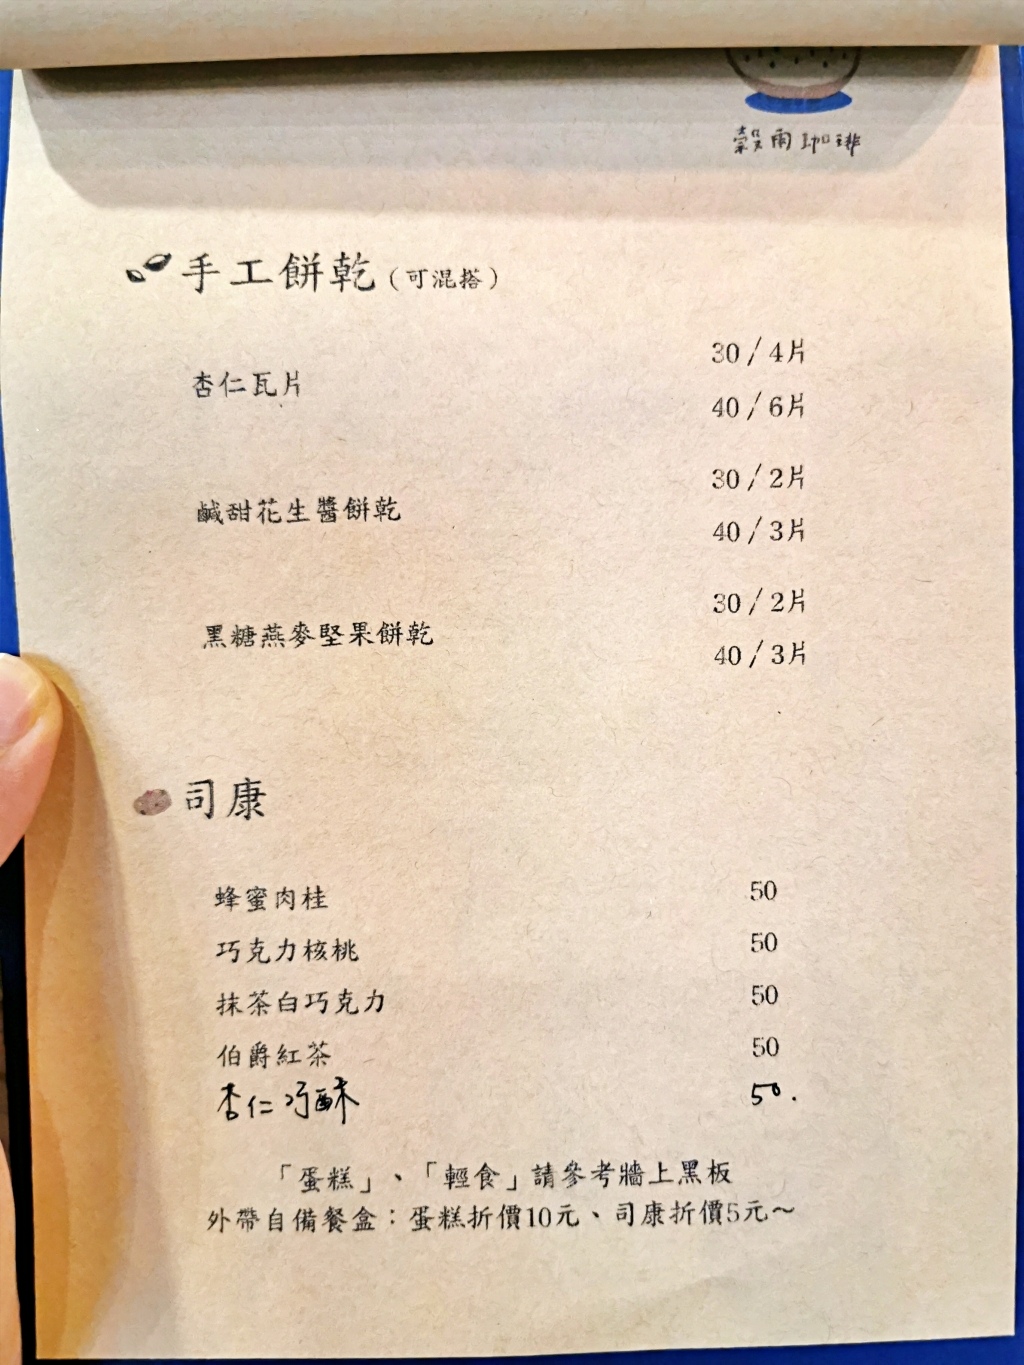 穀雨珈琲
手工餅乾(可混搭)
杏仁瓦片
30/4片
40/6片
鹹甜花生醬餅乾
30/2片
40/3片
黑糖燕麥堅果餅乾
30/2片
40/3片
司康
蜂蜜肉桂 50
巧克力核桃 50
抹茶白巧克力 50
伯爵紅茶 50
杏仁巧酥 50.
「蛋糕」、「輕食」請參考牆上黑板
外帶自備餐盒：蛋糕折價10元、司康折價5元～